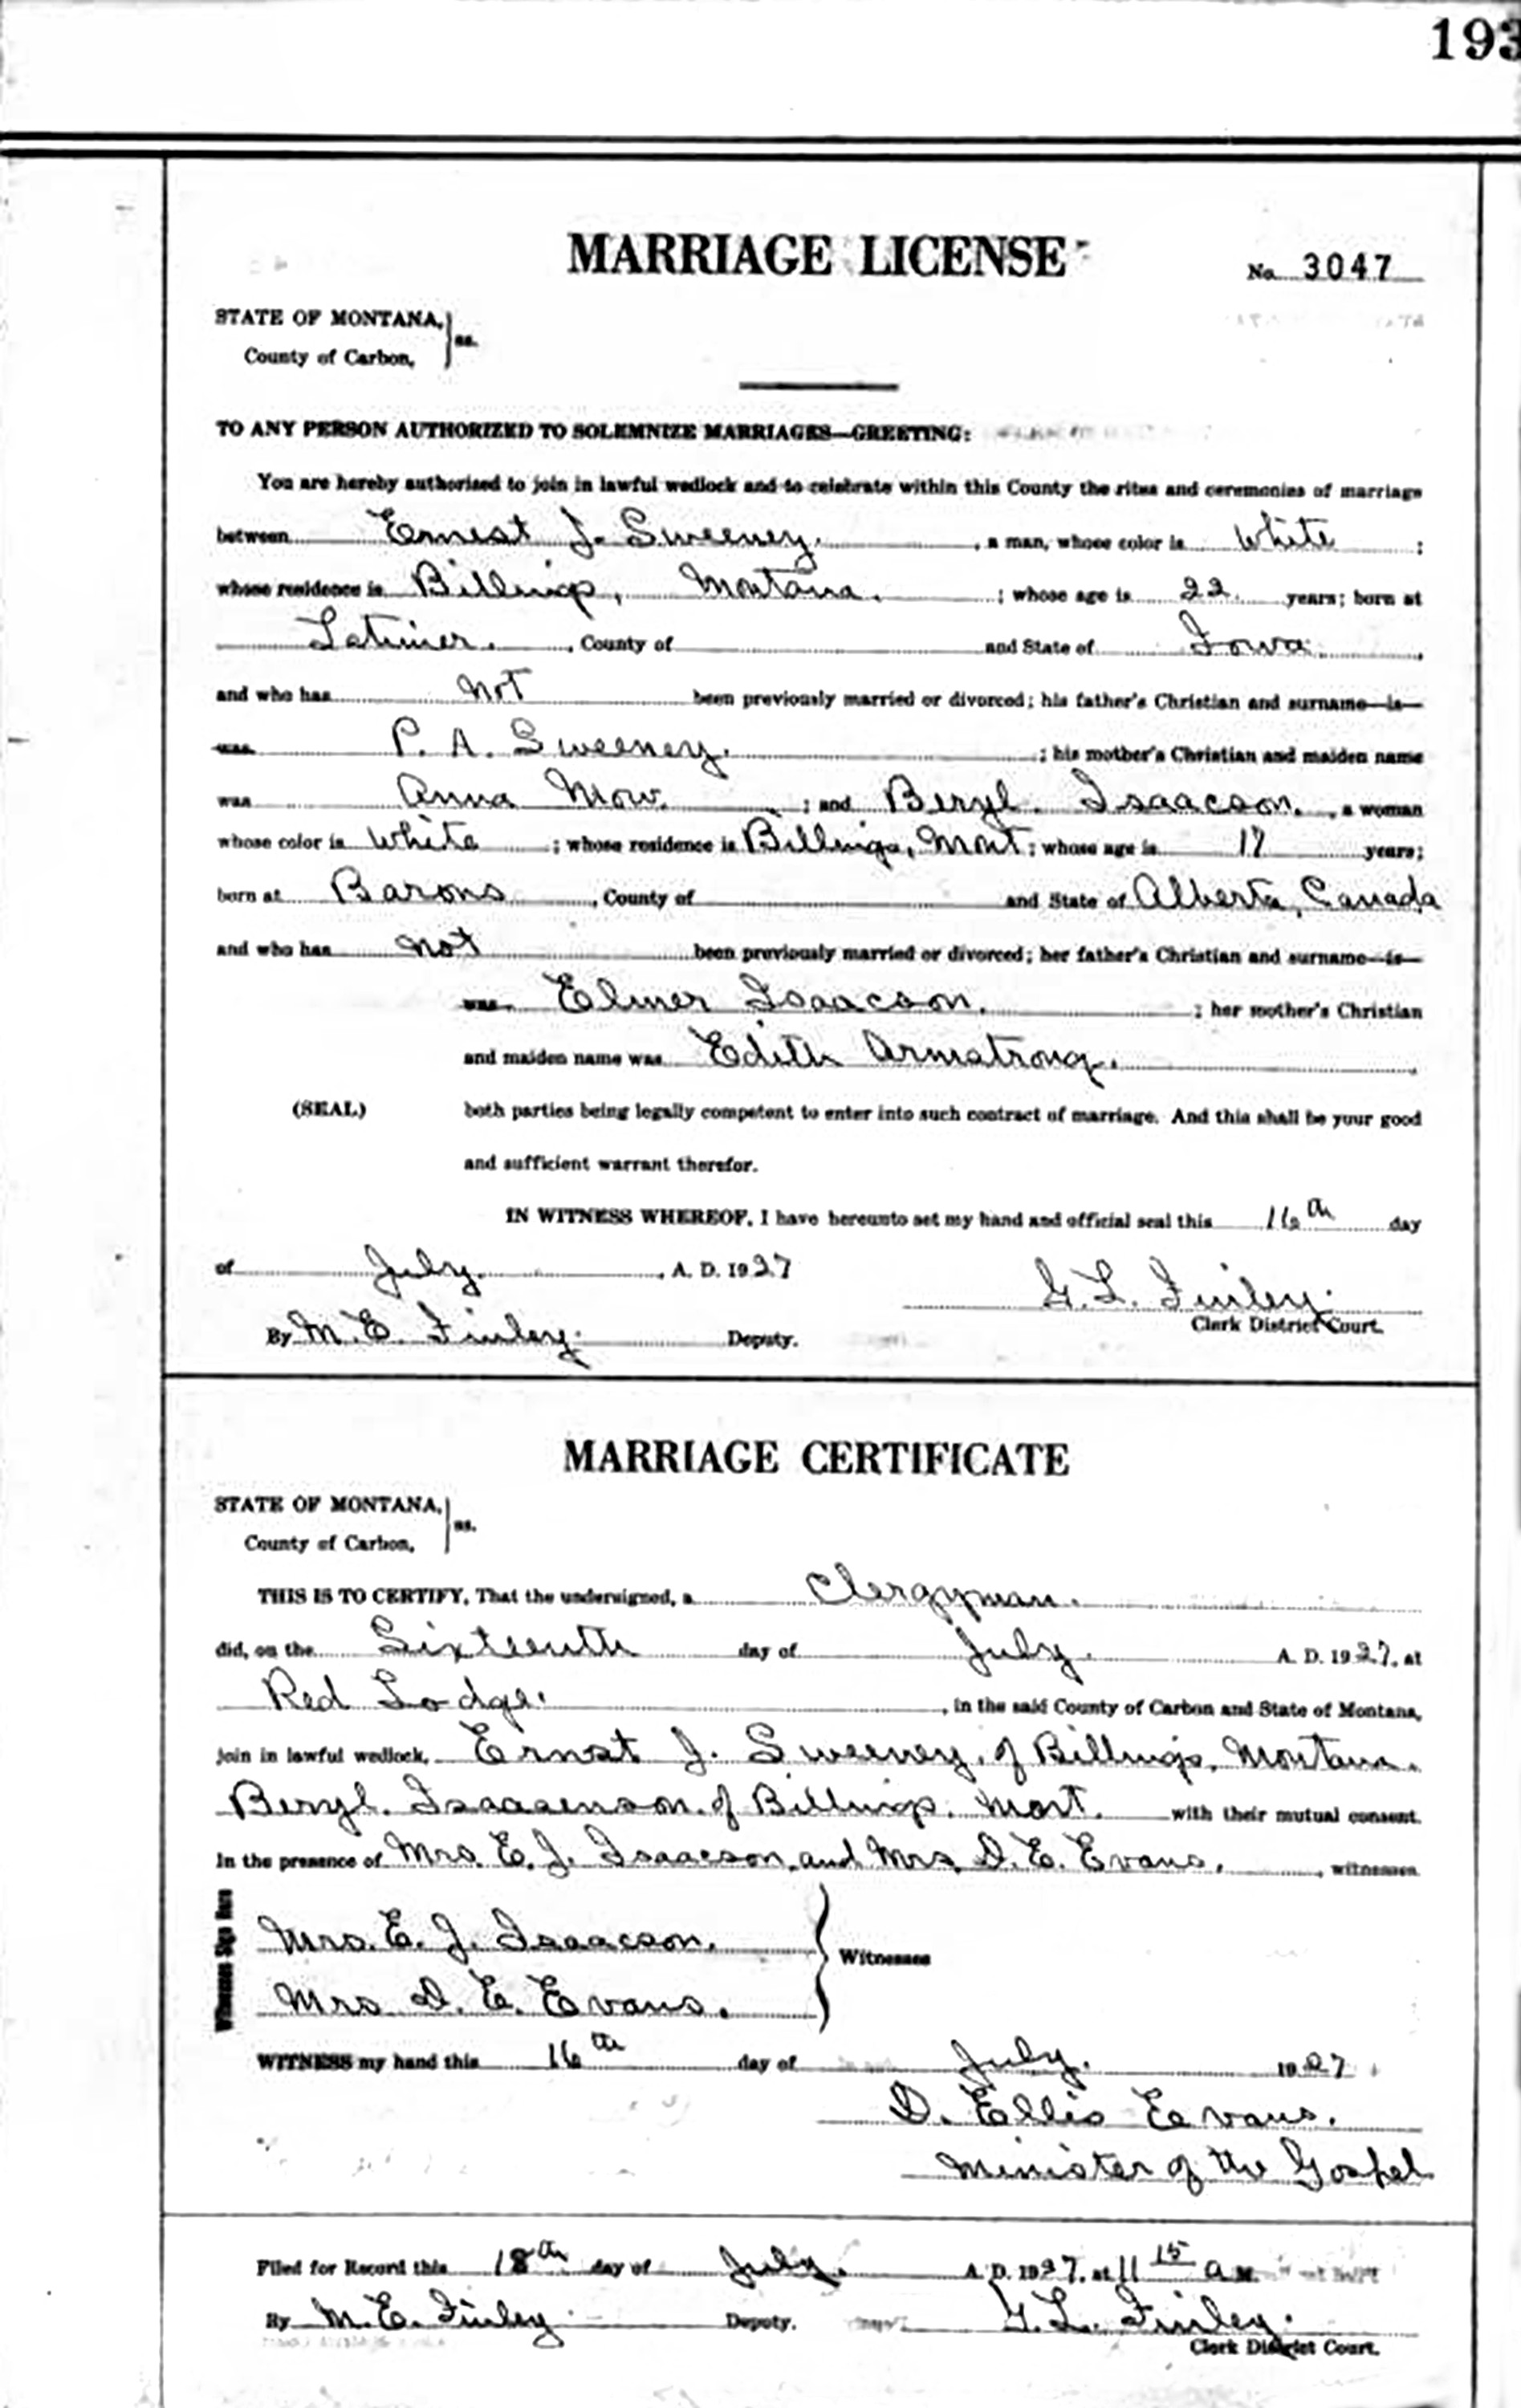 193
MARRIAGE LICENSE
No. 3047
STATE OF MONTANA,
ss.
County of Carbon,
TO ANY PERSON AUTHORIZED TO SOLEMNIZE MARRIAGES—GREETING:
You are hereby authorized to join in lawful wedlock and to celebrate within this County the rites and ceremonies of marriage
between Ernest J. Sweeney. , a man, whose color is White ;
whose residence is Billings, Montana. ; whose age is 22 years; born at
Latimer. , County of and State of Iowa ,
and who has not been previously married or divorced; his father's Christian and surname is
was P. A. Sweeney. ; his mother's Christian and maiden name
was Anna Mow. ; and Beryl. Isaacson. , a woman
whose color is White ; whose residence is Billings, Mont ; whose age is years;
born at Barons , County of and State of Alberta, Canada
and who has not been previously married or divorced; her father's Christian and surname is
was Elmer Isaacson. ; her mother's Christian
and maiden name was Edith Armstrong.
(SEAL) both parties being legally competent to enter into such contract of marriage. And this shall be your good
and sufficient warrant therefor.
IN WITNESS WHEREOF, I have hereunto set my hand and official seal this 16th day
of July. , A. D. 1927
G. L. Finley.
By M. E. Finley. Deputy. Clerk District Court.
MARRIAGE CERTIFICATE
STATE OF MONTANA,
ss.
County of Carbon,
THIS IS TO CERTIFY, That the undersigned, a Clergyman.
did, on the Sixteenth day of July. A. D. 1927, at
Red Lodge. , in the said County of Carbon and State of Montana,
join in lawful wedlock, Ernest J. Sweeney, of Billings, Montana.
Beryl. Isaacenson. of Billings. Mont. with their mutual consent.
In the presence of Mrs. E. J. Isaacson. and Mrs. D. E. Evans. , witnesses
Witnesses Sign Here
Mrs. E. J. Isaacson.
Witnesses
Mrs D. E. Evans.
WITNESS my hand this 16th day of July. 1927
D. Ellis Evans.
Minister of the Gospel
Filed for Record this 18th day of July. A. D. 1927, at 11 15 a M.
By M. E. Finley. Deputy. G. L. Finley.
Clerk District Court.